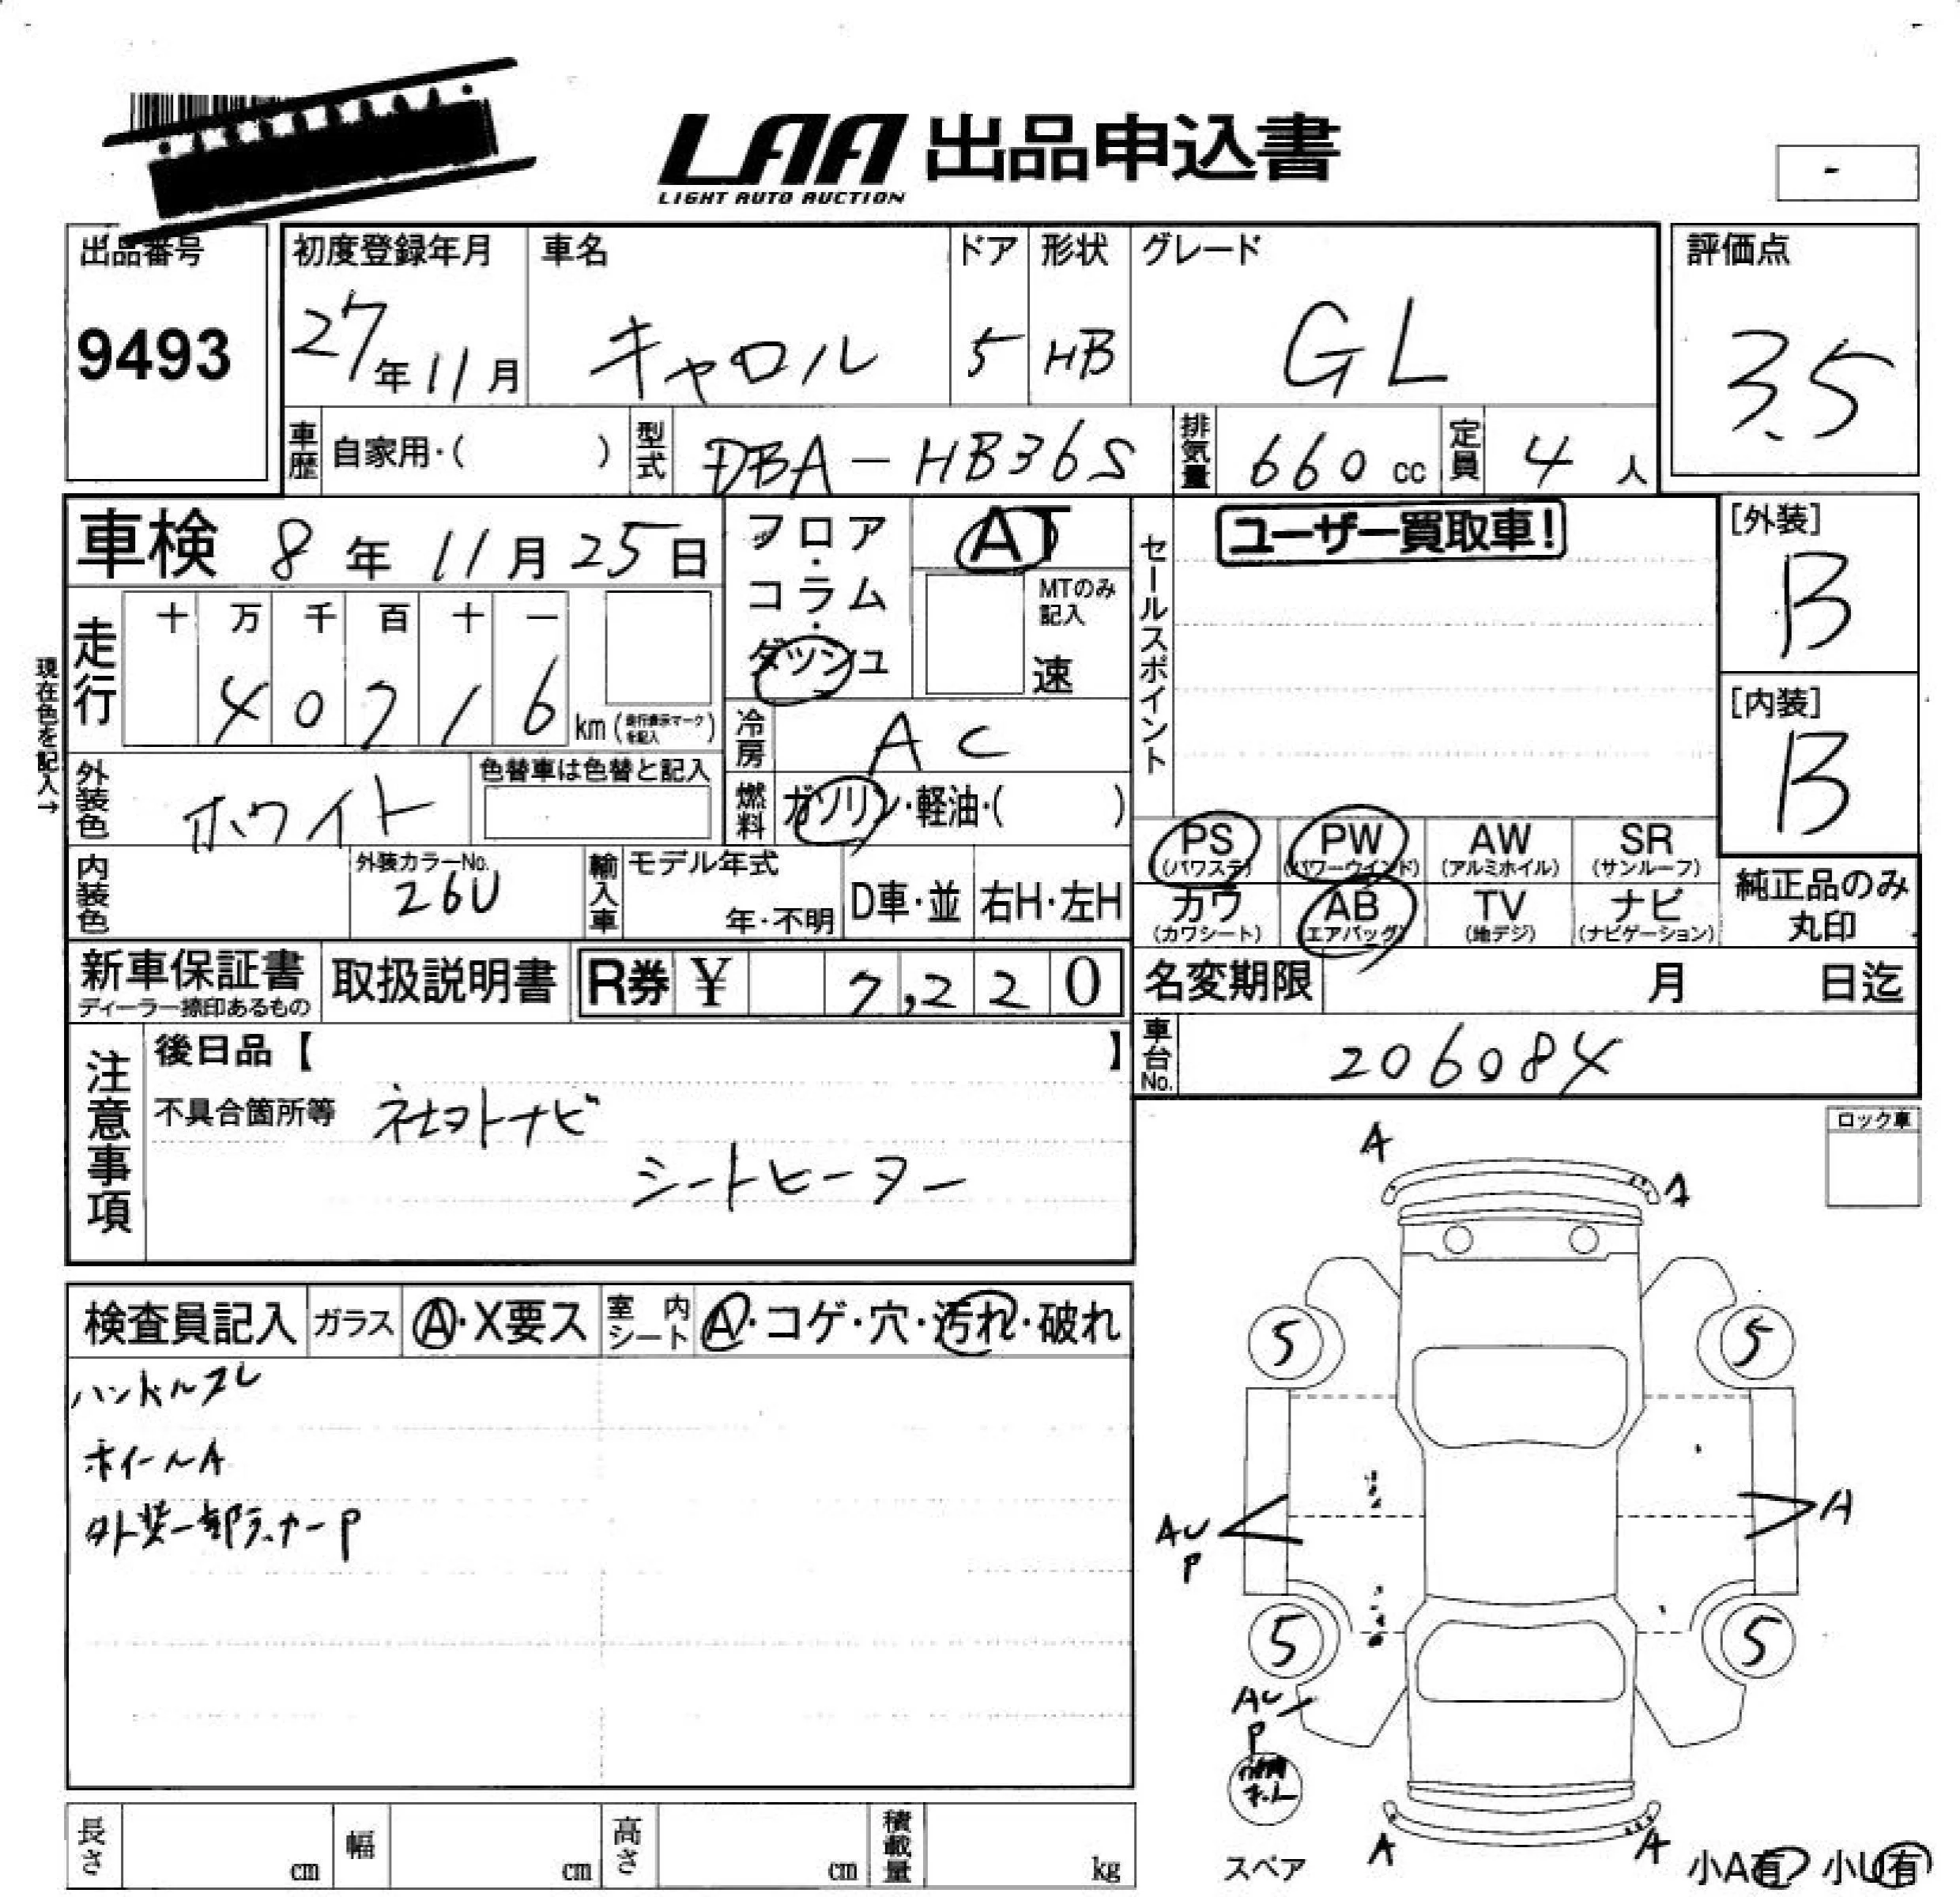 LAA 出品申込書
LIGHT AUTO AUCTION
-
出品番号
9493
初度登録年月
27年11月
車名
キャロル
ドア
5
形状
HB
グレード
GL
評価点
3.5
車歴 自家用・( )
型式 DBA-HB36S
排気量 660 cc
定員 4 人
車検 8年11月25日
フロア・コラム・ダッシュ
AT
MTのみ記入
速
セールスポイント
ユーザー買取車!
[外装]
B
[内装]
B
現在色を記入→
走行
十 万 千 百 十 一
4 0 7 1 6 km (走行表示マークを記入)
冷房 AC
外装色 ホワイト
色替車は色替と記入
燃料 ガソリン・軽油・( )
PS (パワステ) PW (パワーウインド) AW (アルミホイル) SR (サンルーフ)
カワ (カワシート) AB (エアバッグ) TV (地デジ) ナビ (ナビゲーション)
純正品のみ丸印
内装色
外装カラーNo.
26U
輸入車 モデル年式
年・不明
D車・並 右H・左H
新車保証書
ディーラー捺印あるもの
取扱説明書
R券 ¥ 7,220
名変期限 月 日迄
車台No. 206084
注意事項
後日品【 】
不具合箇所等 社外ナビ
シートヒーター
ロック車
検査員記入 ガラス A・X要ス 室内シート A・コゲ・穴・汚れ・破れ
ハンドルスレ
ホイールA
外装一部ライナーP
A
A
5 5
AU
P
A
5 5
AU
P
スペア
A A
小A有 小U有
長さ cm 幅 cm 高さ cm 積載量 kg